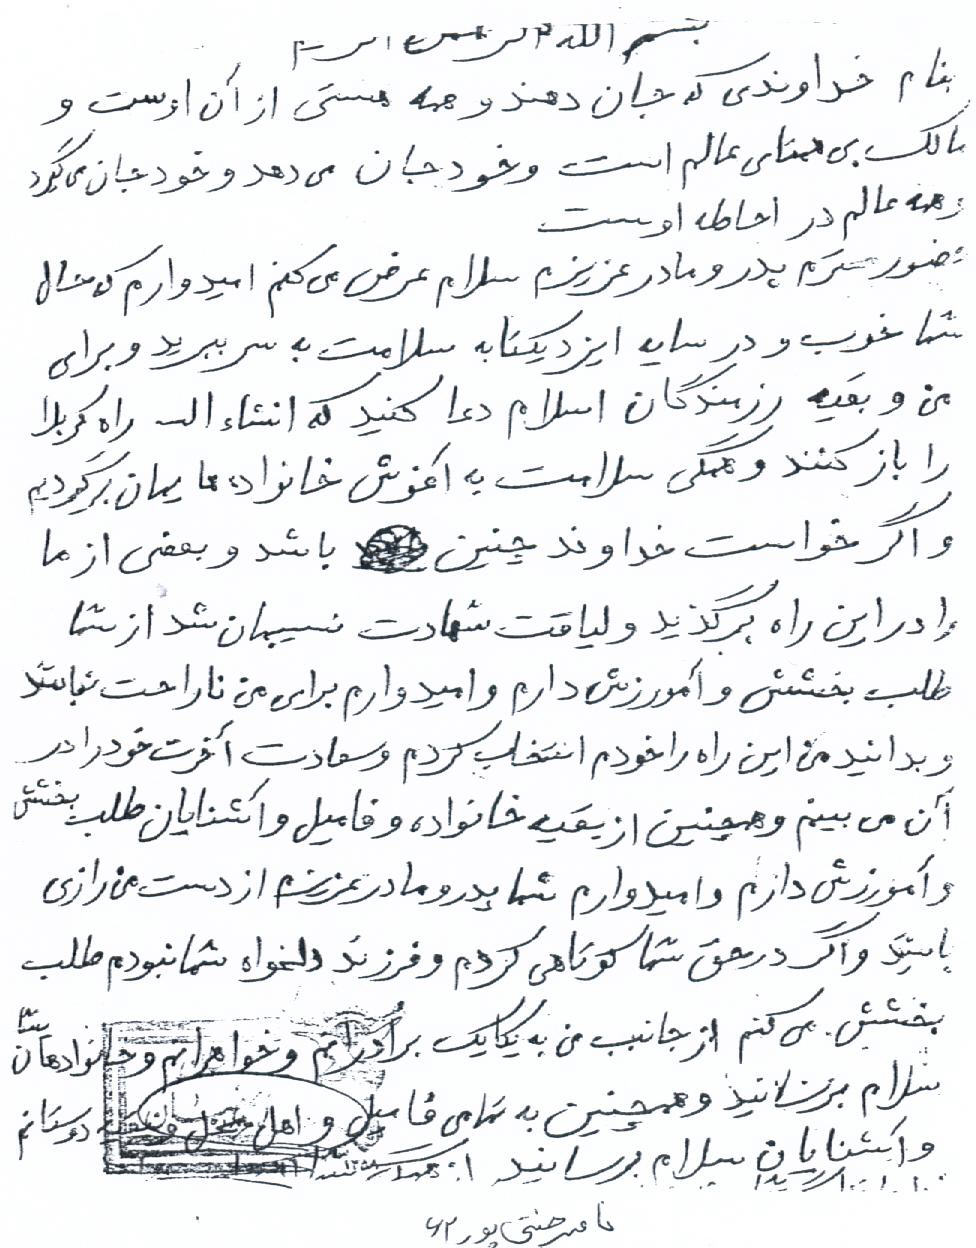 بسم الله الرحمن الرحیم
بنام خداوندی که جان دهند و همه هستی از آن اوست و
مالک بی همتای عالم است و خود جان می دهد و خود جان می گیرد
و همه عالم در احاطه اوست
حضور محترم پدر و مادر عزیزم سلام عرض می کنم امیدوارم که حال
شما خوب و در سایه ایزد یکتا به سلامت به سر ببرید و برای
من و بقیه رزمندگان اسلام دعا کنید که انشاء الله راه کربلا
را باز کنند و همگی سلامت به آغوش خانواده هایمان برگردیم
و اگر خواست خداوند چنین باشد و بعضی از ما
را در این راه برگذید و لیاقت شهادت نسیبمان شد از شما
طلب بخشش و آمورزش دارم و امیدوارم برای من ناراحت نباشد
و بدانید من این راه را خودم انتخاب کردم و سعادت آخرت خود را در
آن می بینم و همچنین از بقیه خانواده و فامیل و آشنایان طلب بخشش
و آمورزش دارم و امیدوارم شما پدر و مادر عزیزم از دست من رازی
باشید و اگر در حق شما کوتاهی کردم و فرزند دلخواه شما نبودم طلب
بخشش می کنم از جانب من به یکایک برادرانم و خواهرانم و خانوادهاشان
سلام برسانید و همچنین به تمامی فامیل و اهل دوستانم
و آشنایان سلام برسانید
پور ۶۲